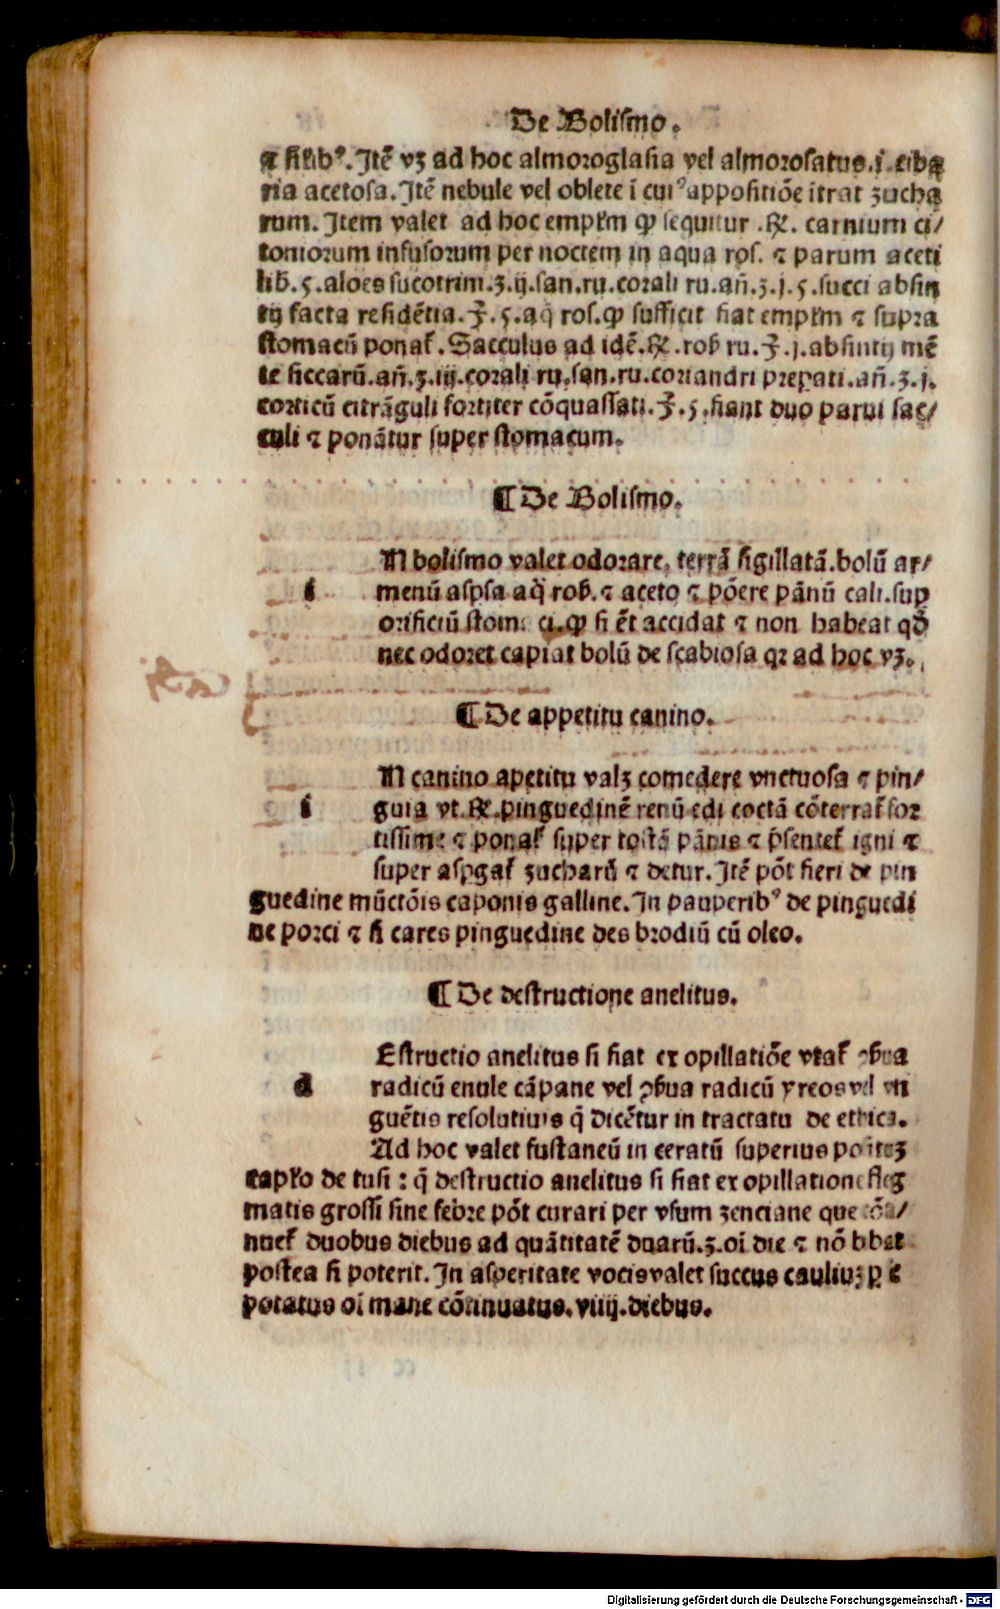 De Bolismo.
⁊ silibꝰ. Itē vꝫ ad hoc almoroglasia vel almorosatus .i. ciba
ria acetosa. Itē nebule vel oblete ī cuiꝰ appositiōe itrat zucha
rum. Item valet ad hoc emplm̄ qđ sequitur .℞. carnium ci/
toniorum infusorum per noctem in aqua ros. ⁊ parum aceti
lib. ꝭ. aloes sucotrim. ʒ. ij. san. ru. corali ru. añ. ʒ. j. ꝭ. succi absin
tij facta residētia. ℥. ꝭ. aq̄ ros. qđ sufficit fiat emplm̄ ⁊ supra
stomacū ponat᷑. Sacculus ad idē. ℞. rob ru. ℥. j. absintij mē
te siccarū. añ. ʒ. iij. corali ru. san. ru. coriandri prepati. añ. ʒ. j.
corticū citrāguli fortiter cōquassati. ℥. ꝭ. fiant duo parui sac/
culi ⁊ ponātur super stomacum.
¶ De Bolismo.
N bolismo valet odorare, terrā sigillatā. bolū ar/
i menū aspsa aq̄ rob. ⁊ aceto ⁊ pōere pānū cali. sup
orificiū ci. qđ si ēt accidat ⁊ non habeat qđ
nec odoret capiat bolū de scabiosa qꝛ ad hoc vꝫ.
¶ De appetitu canino.
N canino apetitu valꝫ comedere vnctuosa ⁊ pin/
i guia vt. ℞. pinguedinē renū edi coctā cōterrat᷑ for
tissime ⁊ ponat᷑ super tostā pānis ⁊ p̄sentet᷑ igni ⁊
super aspgat᷑ zucharū ⁊ detur. Itē pōt fieri de pin
guedine mūctōis caponis galline. In pauperibꝰ de pinguedi
ne porci ⁊ si cares pinguedine des brodiū cū oleo.
¶ De destructione anelitus.
Estructio anelitus si fiat ex opillatiōe vtat᷑ ꝯẜua
d radicū enule cāpane vel ꝯẜua radicū yreos vel vn
guētis resolutiuis q̄ dicētur in tractatu de ethica.
Ad hoc valet fustaneū in ceratū superius
caplo de tusi : q̄ destructio anelitus si fiat ex opillatione fleg
matis grossi sine febre pōt curari per vsum zenciane que
nuet᷑ duobus diebus ad quātitatē duarū. ʒ. oī die ⁊ nō
postea si poterit. In asperitate vocis valet succus
potatus oī mane cōtinuatus. viiij. diebus.
Digitalisierung gefördert durch die Deutsche Forschungsgemeinschaft - DFG